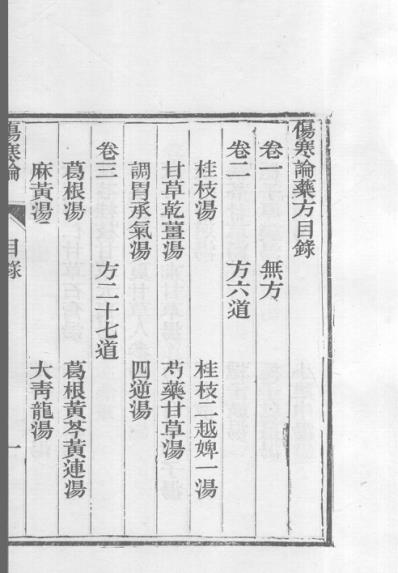 傷寒論藥方目錄
卷一 無方
卷二 方六道
桂枝湯 桂枝二越婢一湯
甘草乾薑湯 芍藥甘草湯
調胃承氣湯 四逆湯
卷三 方二十七道
葛根湯 葛根黃芩黃連湯
麻黃湯 大靑龍湯
傷寒論 目錄 一